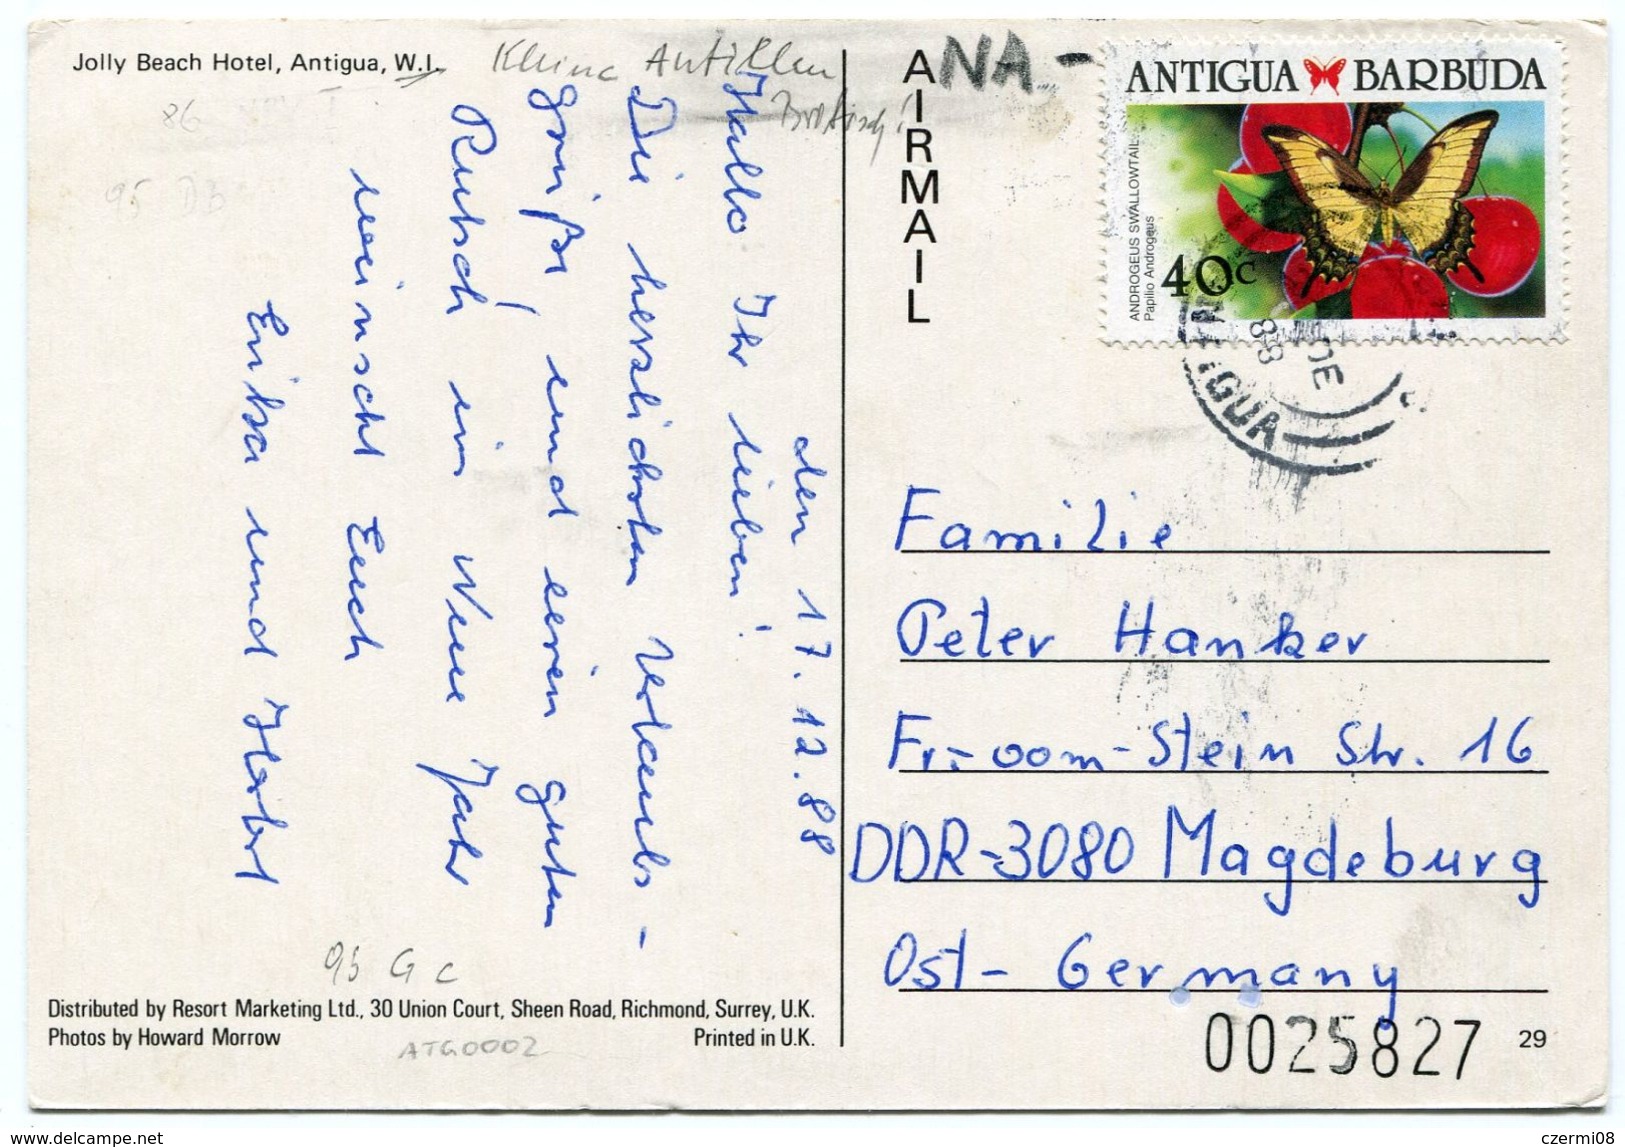 Jolly Beach Hotel, Antigua, W.I.
Kleine Antillen
86
95 DB
den 17.12.88
Hallo Ihr lieben!
Die herzlichsten Urlaubs-
grüße, und einen guten
Rutsch ins Neue Jahr
wünscht Euch
Erika und Herbert
95 G c
Distributed by Resort Marketing Ltd., 30 Union Court, Sheen Road, Richmond, Surrey, U.K.
Photos by Howard Morrow
Printed in U.K.
ATG0002
AIRMAIL
NA-
ANTIGUA BARBUDA
ANDROGEUS SWALLOWTAIL
Papilio Androgeus
40c
DE
88
ANTIGUA
Familie
Peter Hanker
Fr.-vom-Stein Str. 16
DDR-3080 Magdeburg
Ost-Germany
0025827
29
czermi08
www.delcampe.net